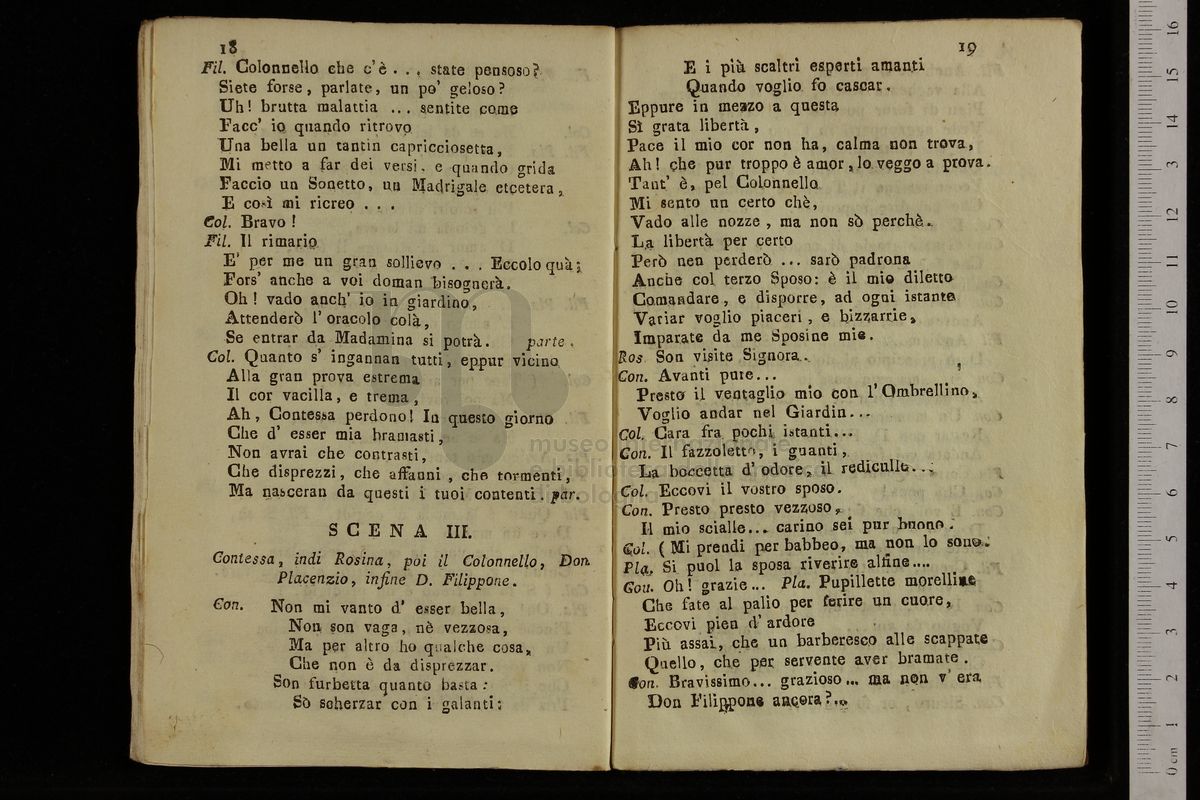 18
Fil. Colonnello che c'è . . . state pensoso?
Siete forse, parlate, un po' geloso?
Uh! brutta malattia ... sentite come
Facc' io quando ritrovo
Una bella un tantin capricciosetta,
Mi metto a far dei versi, e quando grida
Faccio un Sonetto, un Madrigale etcetera,
E così mi ricreo . . .
Col. Bravo!
Fil. Il rimario
E' per me un gran sollievo . . . Eccolo quà;
Fors' anche a voi doman bisognerà.
Oh! vado anch' io in giardino,
Attenderò l' oracolo colà,
Se entrar da Madamina si potrà. parte.
Col. Quanto s' ingannan tutti, eppur vicino
Alla gran prova estrema
Il cor vacilla, e trema,
Ah, Contessa perdono! In questo giorno
Che d' esser mia bramasti,
Non avrai che contrasti,
Che disprezzi, che affanni, che tormenti,
Ma nasceran da questi i tuoi contenti. par.
SCENA III.
Contessa, indi Rosina, poi il Colonnello, Don
Placenzio, infine D. Filippone.
Con. Non mi vanto d' esser bella,
Non son vaga, nè vezzosa,
Ma per altro ho qualche cosa,
Che non è da disprezzar.
Son furbetta quanto basta:
Sò scherzar con i galanti:
19
E i più scaltri esperti amanti
Quando voglio fo cascar.
Eppure in mezzo a questa
Sì grata libertà,
Pace il mio cor non ha, calma non trova,
Ah! che pur troppo è amor, lo veggo a prova.
Tant' è, pel Colonnello
Mi sento un certo chè,
Vado alle nozze, ma non sò perchè.
La libertà per certo
Però nen perderò ... sarò padrona
Anche col terzo Sposo: è il mio diletto
Comandare, e disporre, ad ogni istante
Variar voglio piaceri, e bizzarrie,
Imparate da me Sposine mie.
Ros. Son visite Signora.
Con. Avanti pure...
Presto il ventaglio mio con l' Ombrellino,
Voglio andar nel Giardin...
Col. Cara fra pochi istanti...
Con. Il fazzoletto, i guanti,
La boccetta d' odore, il rediculle...
Col. Eccovi il vostro sposo.
Con. Presto presto vezzoso,
Il mio scialle... carino sei pur buono.
Col. (Mi prendi per babbeo, ma non lo sono.
Pla. Si puol la sposa riverire alfine....
Cou. Oh! grazie... Pla. Pupillette morelline
Che fate al palio per ferire un cuore,
Eccovi pien d' ardore
Più assai, che un barberesco alle scappate
Quello, che per servente aver bramate.
Con. Bravissimo... grazioso... ma non v' era
Don Filippone ancora?...
museo internazionale
e biblioteca della musica
di bologna
0 cm 1 2 3 4 5 6 7 8 9 10 11 12 13 14 15 16